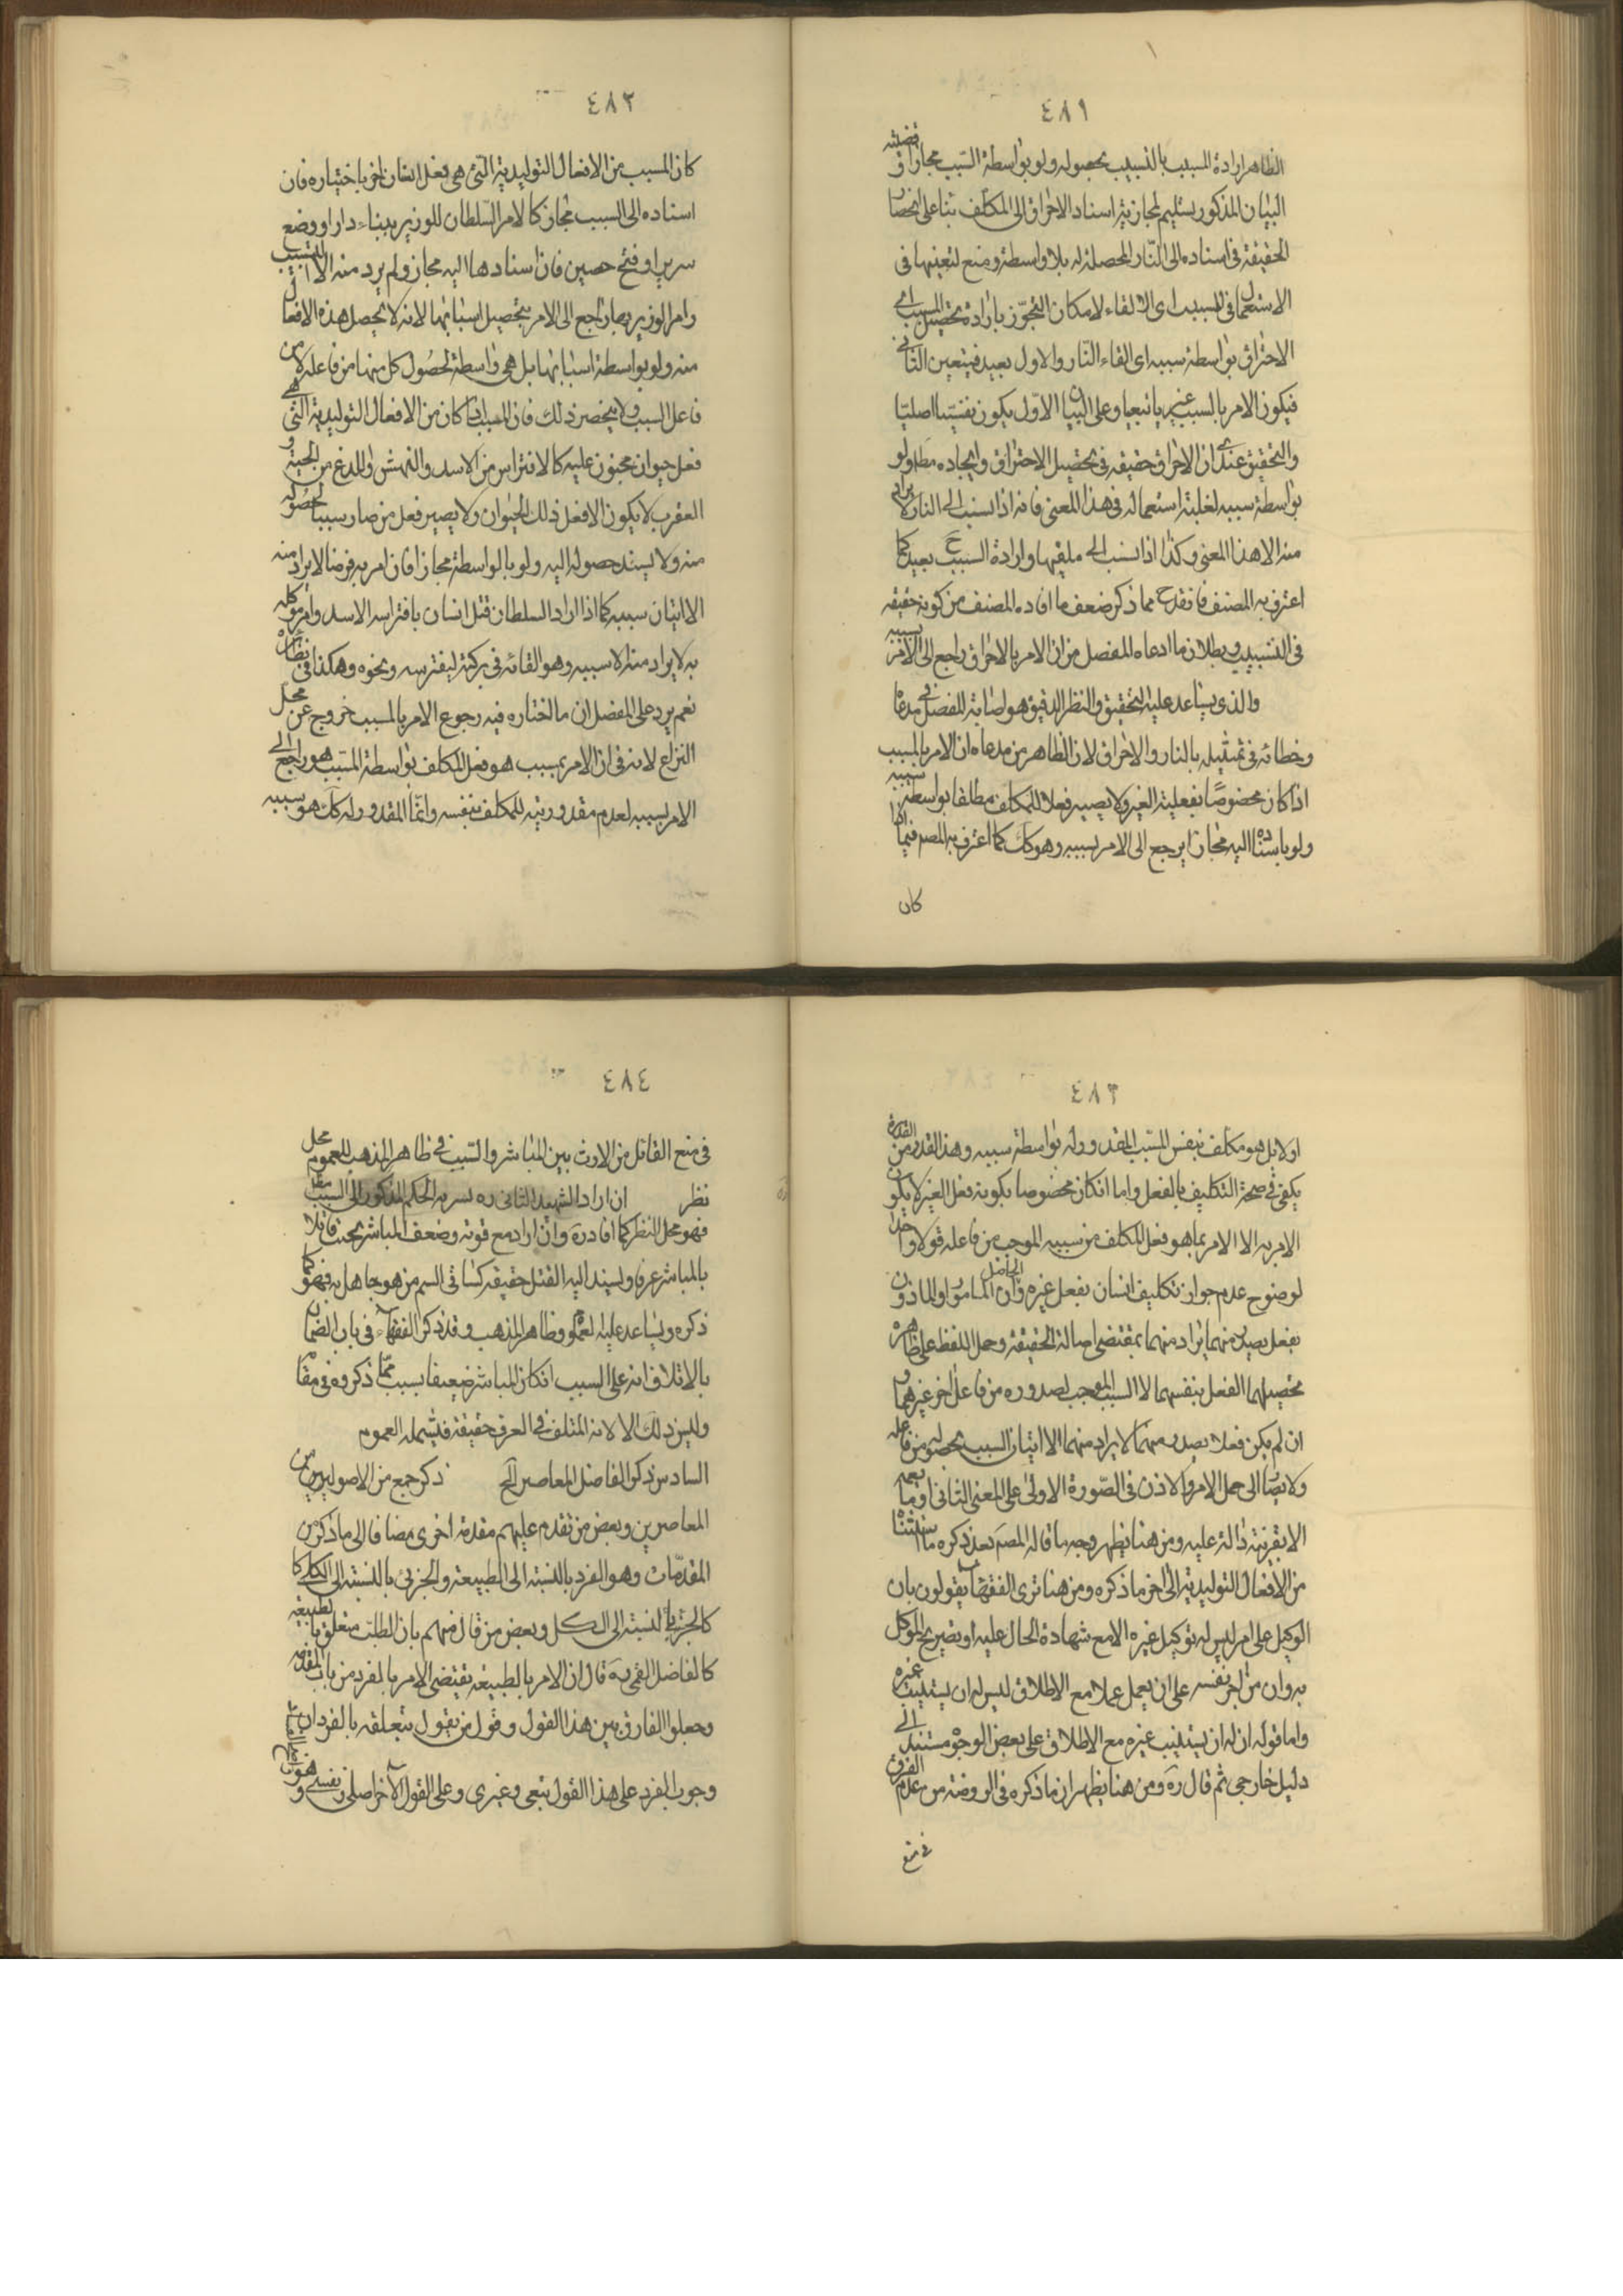 ٤٨١
الظاهر ارادة المسبب بالتسبيب بحصوله ولو بواسطة السبب مجازا وقضيته
البيان المذكور يستليم لمجازية اسناد الاحراق الى المكلف بناء على انحصار
الحقيقة في اسناده الى النار المحصلة له بلا واسطة ومنع لتعينها في
الاستعمال في المسبب اى الالقاء لامكان التجوز بارادة تحصيل المسبب اى
الاحتراق بواسطة سببه اى القاء النار والاول بعيد فيتعين الثانى
فيكون الامر بالسبب غيريا تبعيا وعلى البيان الاول يكون نفسيا اصليا
والتحقيق عندى ان الاحراق حقيقه في تحصيل الاحتراق وايجاده مطلقا ولو
بواسطة سببه لغلبة استعماله في هذا المعنى فانه اذا نسب الى النار لا يراد
منه الا هذا المعنى وكذا اذا نسب الى ملقيها وارادة السبب ح بعيد كما
اعترف به المصنف فانقدح مما ذكر ضعف ما افاده المصنف من كونه حقيقه
في التسبيب وبطلان ما ادعاه المفصل من ان الامر بالاحراق راجع الى الامر بسببه
والذى يساعد عليه التحقيق والنظر الدقيق هو اصابة المفصل في مدعاه
وخطائه في تمثيله بالنار والاحراق لان الظاهر من مدعاه ان الامر بالمسبب
اذا كان مخصوصا بفعلية الغير ولا يصير فعلا للمكلف مطلقا بواسطة سببه
ولو باسناده اليه مجازا يرجع الى الامر بسببه وهو كك كما اعترف به المصم فيما اذا
كان
٤٨٢
كان المسبب من الافعال التوليدية التى هى فعل انسان اخر باختياره فان
اسناده الى السبب مجاز كالامر السلطان للوزير ببناء دار او وضع
سرير او فتح حصين فان اسنادها اليه مجاز ولم يرد منه الا التسبيب
وامر الوزير بها راجع الى الامر بتحصيل اسبابها لانه لا يحصل هذه الافعال
منه ولو بواسطة اسبابها بل هى واسطة لحصول كل منها من فاعله لا من
فاعل السبب ولا ينحصر ذلك فان المسبب اذا كان من الافعال التوليدية التى هى
فعل حيوان مجنون عليه كالافتراس من الاسد والنهش واللدغ من الحية و
العقرب لا يكون الا فعل ذلك الحيوان ولا يصير فعل من صار سببا لحصوله
منه ولا يسند حصوله اليه ولو بالواسطة مجازا فان امر به فرضا لا يراد منه
الا اتيان سببه كما اذا اراد السلطان قتل انسان بافتراس الاسد وامر موكله
به لا يراد منه الا سببه وهو القائه في بركة ليفترسه ونحوه وهكذا في نظائره
نعم يرد على المفصل ان ما اختاره فيه رجوع الامر بالمسبب خروج عن محل
النزاع لانه في ان الامر بمسبب هو فعل المكلف بواسطة السبب هو راجع الى
الامر بسببه لعدم مقدوريته للمكلف بنفسه وانما المقدور له كك هو سببه
٤٨٣
اولا بل هو مكلف بنفس المسبب المقدور له بواسطة سببه وهذا القدر من القدرة
يكفى في صحة التكليف بالفعل واما ان كان مخصوصا بكونه فعل الغير لا يكون
الامر به الا الامر بما هو فعل المكلف من سببه الموجب من فاعله قولا واحدا
لوضوح عدم جواز تكليف انسان بفعل غيره الحاصل وان المامور او الماذون
بفعل يصدر منهما يراد منهما بمقتضى اصالة الحقيقة وحمل اللفظ على ظاهره
تحصيلهما الفعل بنفسهما لا السبب الموجب لصدوره من فاعل اخر غيرهما و
ان لم يكن فعلا يصدر منهما لا يراد منهما الا اتيان السبب لحصوله من فاعله
ولا يصار الى حمل الامر والاذن في الصورة الاولى على المعنى الثانى او ما يعمه
الا بقرينة دالة عليه ومن هنا يظهر وجه ما قاله المصم بعد ذكره ما
من الافعال التوليدية الى اخر ما ذكره ومن هنا ترى الفقهاء يقولون بان
الوكيل على امر ليس له توكيل غيره الا مع شهادة الحال عليه او تصريح الموكل
به وان من اجر نفسه على ان يعمل عملا مع الاطلاق ليس له ان يستنيب غيره
واما قوله ان له ان يستنيب غيره مع الاطلاق على بعض الوجوه مستند الى
دليل خارجى ثم قال ره ومن هنا يظهر ان ما ذكره في الروضة من عدم الفرق
في منع
٤٨٤
في منع القاتل من الارث بين المباشر والسبب في ظاهر المذهب للعموم محل
نظر ان اراد الشهيد الثانى ره بسرية الحكم المذكور الى السبب مطلقا
فهو محل النظر كما افاد ره وان اراد مع قوته وضعف المباشر بحيث قاتلا
بالمباشر عرفا ويسند اليه القتل حقيقه كساقى السم من هو جاهل به فهو كما
ذكره ويساعد عليه العموم وظاهر المذهب وقد ذكر الفقهاء في باب الضمان
بالاتلاف انه على السبب ان كان المباشر ضعيفا بسبب مما ذكروه في مقامه
وليس ذلك الا لانه المتلف في العرف حقيقة فيشمله العموم
السادس ذكر الفاضل المعاصر الخ ذكر جمع من الاصوليين من
المعاصرين وبعض من تقدم عليهم مقدمة اخرى مضافا الى ما ذكر من
المقدمات وهو الفرد بالنسبة الى الطبيعة والجزئى بالنسبة الى الكلى كا
كالجزء بالنسبة الى الكل وبعض من قال منهم بان الطلب متعلق بالطبيعة
كالفاضل القمى ره قال ان الامر بالطبيعة يقتضى الامر بالفرد من باب المقدمة
وجعلوا الفارق بين هذا القول وقول من يقول بتعلقه بالفرد ان
وجوب الفرد على هذا القول تبعى وغيرى وعلى القول الاخر اصلى ونفسى و